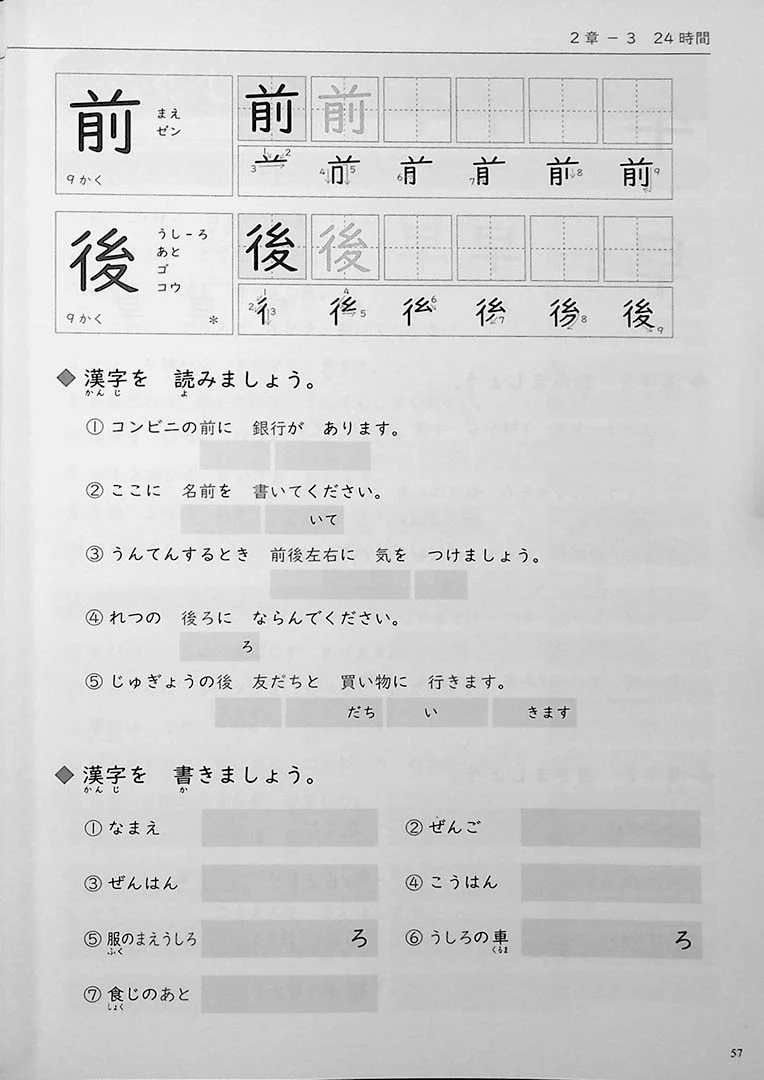 2章－3 24時間
前 まえ ゼン 9かく
前 前
1 2 3 4 5 6 7 8 9
後 うし－ろ あと ゴ コウ 9かく *
後 後
1 2 3 4 5 6 7 8 9
◆漢字を 読みましょう。
かんじ よ
①コンビニの前に 銀行が あります。
②ここに 名前を 書いてください。
いて
③うんてんするとき 前後左右に 気を つけましょう。
④れつの 後ろに ならんでください。
ろ
⑤じゅぎょうの後 友だちと 買い物に 行きます。
だち い きます
◆漢字を 書きましょう。
かんじ か
①なまえ ②ぜんご
③ぜんはん ④こうはん
⑤服のまえうしろ ろ ⑥うしろの車 ろ
ふく くるま
⑦食じのあと
しょく
57